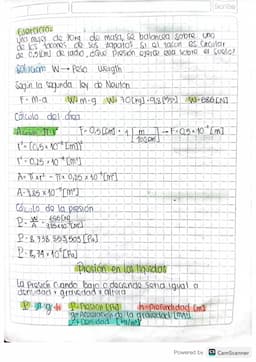 Ejercicio:
Una mujer de 70 kg de masa, se balancea sobre uno
de los tacones de sus zapatos. Si el tacón es circular
de 0,5[cm] de radio, ¿qué presión ejerce ella sobre el suelo?
Solución W → Peso weight
Según la segunda ley de Newton
F = m·a W = m·g W = 70[kg]·9,8[m/s²] W = 686[N]
Cálculo del área
A = π·r² r = 0,5[cm] · 1[m]/100[cm] → r = 0,5×10⁻²[m]
r² = (0,5×10⁻²[m])²
r² = 0,25×10⁻⁴[m²]
A = π×r² = π·0,25×10⁻⁴[m²]
A = 7,85×10⁻⁵[m²]
Cálculo de la presión
P = W/A = 686[N]/7,85×10⁻⁵[m²]
P = 8.738.853,503[Pa]
P = 8,74×10⁶[Pa]
Presión en los líquidos
La presión cuando bajo o desciendo sería igual a
densidad × gravedad × altura
P = Presión [Pa] h = profundidad [m]
g = Aceleración de la gravedad [m/s²]
Densidad
Powered by CS CamScanner